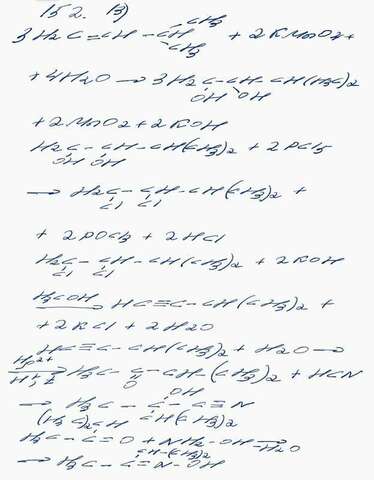 152. в)
CH3
3H2C=CH-CH + 2KMnO4 +
CH3
+ 4H2O → 3H2C-CH-CH(H3C)2
OH OH
+ 2MnO2 + 2KOH
H2C-CH-CH(CH3)2 + 2PCl5
OH OH
→ H2C-CH-CH(CH3)2 +
Cl Cl
+ 2POCl3 + 2HCl
H2C-CH-CH(CH3)2 + 2KOH
Cl Cl
HC≡C-CH(CH3)2 +
+ 2KCl + 2H2O
HC≡C-CH(CH3)2 + H2O →
H3C-C-CH-(CH3)2 + HCN
O
OH
→ H3C-C-C≡N
CH(CH3)2
(H3C)2CH
H3C-C=O + NH2-OH -H2O
CH-(CH3)2
→ H3C-C=N-OH